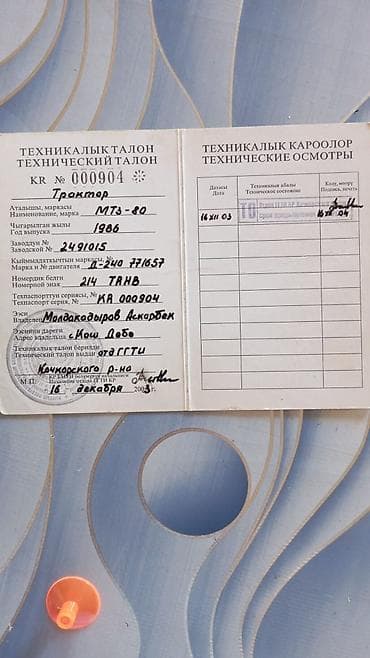 ТЕХНИКАЛЫК ТАЛОН
ТЕХНИЧЕСКИЙ ТАЛОН
KR № 000904
Трактор
Аталышы, маркасы
Наименование, марка МТЗ-80
Чыгарылган жылы
Год выпуска 1986
Заводдун №
Заводской № 2491015
Кыймылдаткычтын маркасы, №
Марка и № двигателя Д-240 771657
Номердик белги
Номерной знак 214 ТАНВ
Техпаспорттун сериясы, №
Техпаспорт серия, № КА 000904
Ээси
Владелец Молдакадыров Аскарбек
Ээсинин дареги
Адрес владельца с Кош Дөбө
Техникалык талон берилди
Технический талон выдан отд ГГТИ
Кочкорского р-на
М.П.
16 декабря 2003 г.
ТЕХНИКАЛЫК КАРООЛОР
ТЕХНИЧЕСКИЕ ОСМОТРЫ
Датасы
Дата
Техникалык абалы
Техническое состояние
Колу, мөөрү
Подпись, печать
16 XII 03
ТО
16 XII 04